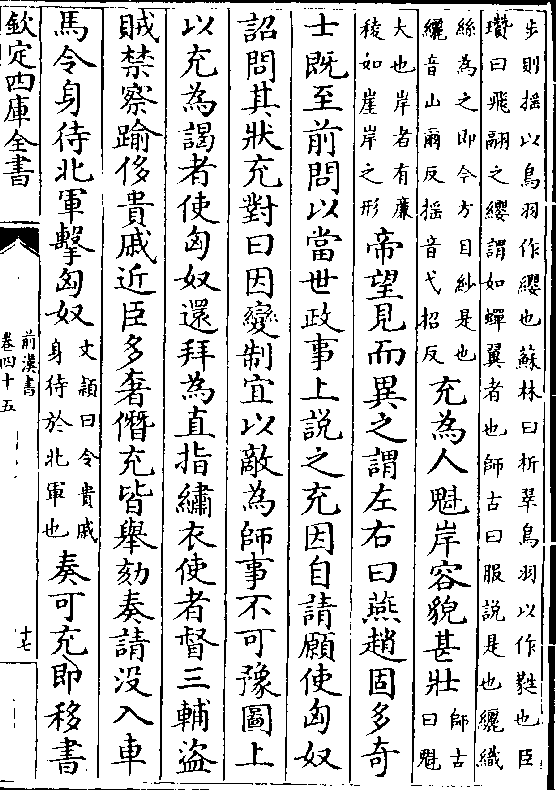 步則揺以鳥羽作纓也蘇林曰析翠鳥羽以作蕤也臣
瓚曰飛翮之纓謂如蟬翼者也師古曰服説是也纚織
絲為之即今方目紗是也
纚音山爾反揺音弋招反
充為人魁岸容貌甚壯
師古
曰魁
大也岸者有廉
稜如崖岸之形
帝望見而異之謂左右曰燕趙固多奇
士既至前問以當世政事上説之充因自請願使匈奴
詔問其狀充對曰因變制宜以敵為師事不可豫圖上
以充為謁者使匈奴還拜為直指繡衣使者督三輔盜
賊禁察踰侈貴戚近臣多奢僭充皆舉劾奏請没入車
馬令身待北軍擊匈奴
文頴曰令貴戚
身待於北軍也
奏可充即移書
欽定四庫全書
前漢書
卷四十五
十七